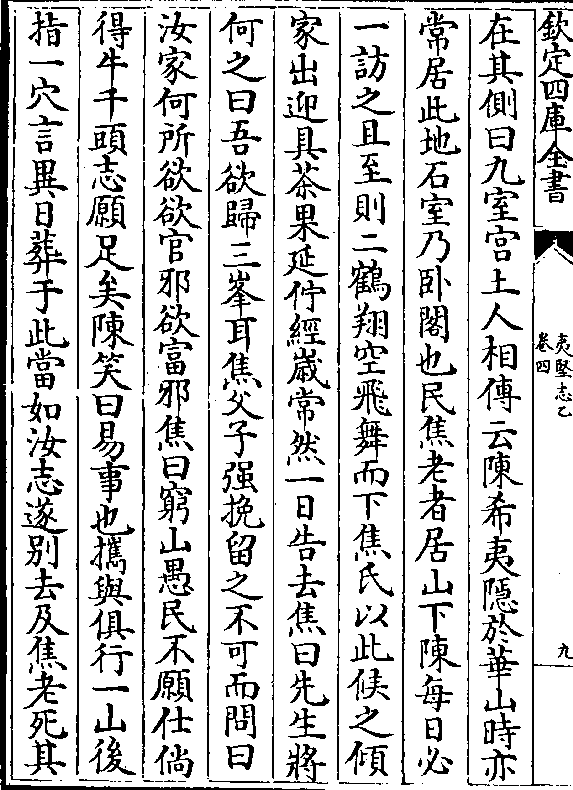 欽定四庫全書
夷堅志乙
卷四
九
在其側曰九室宫土人相傳云陳希夷隱於華山時亦
常居此地石室乃卧閣也民焦老者居山下陳每日必
一訪之且至則二鶴翔空飛舞而下焦氏以此候之傾
家出迎具茶果延佇經歲常然一日告去焦曰先生將
何之曰吾欲歸三峯耳焦父子强挽留之不可而問曰
汝家何所欲欲官邪欲富邪焦曰窮山愚民不願仕倘
得牛千頭志願足矣陳笑曰易事也攜與俱行一山後
指一穴言異日葬于此當如汝志遂别去及焦老死其